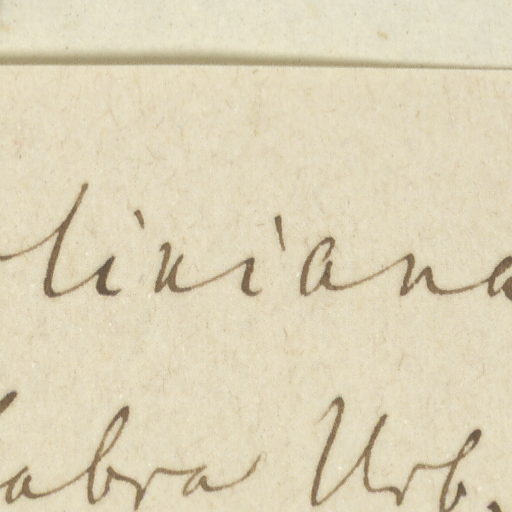 liniana
labra Urb.